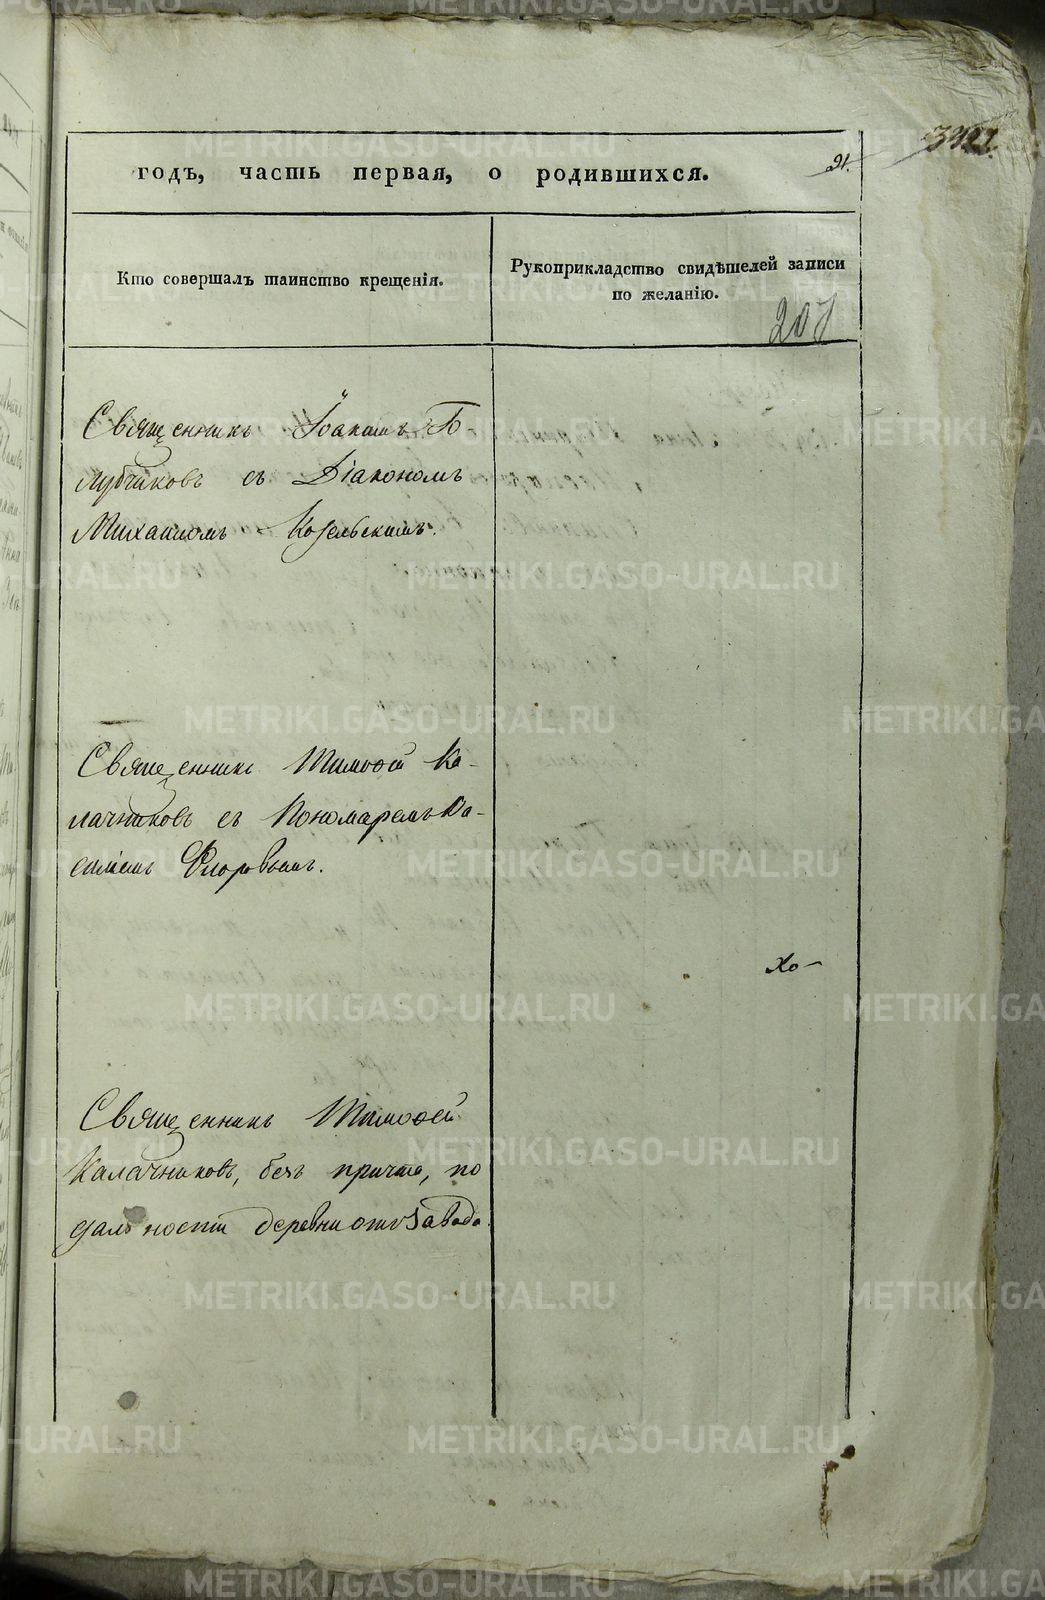 годъ, часть первая, о родившихся.
21.
Кто совершалъ таинство крещенія.
Рукоприкладство свидѣтелей записи
по желанію.
207
Священникъ Іоакимъ
съ Діакономъ
Михаиломъ Козельскимъ.
Священникъ Тимоѳей Ка-
лачниковъ съ Пономаремъ Ка-
Флоровымъ.
Хо-
Священникъ Тимоѳей
Калачниковъ, безъ причта, по
дальности деревни отъ завода.
METRIKI.GASO-URAL.RU